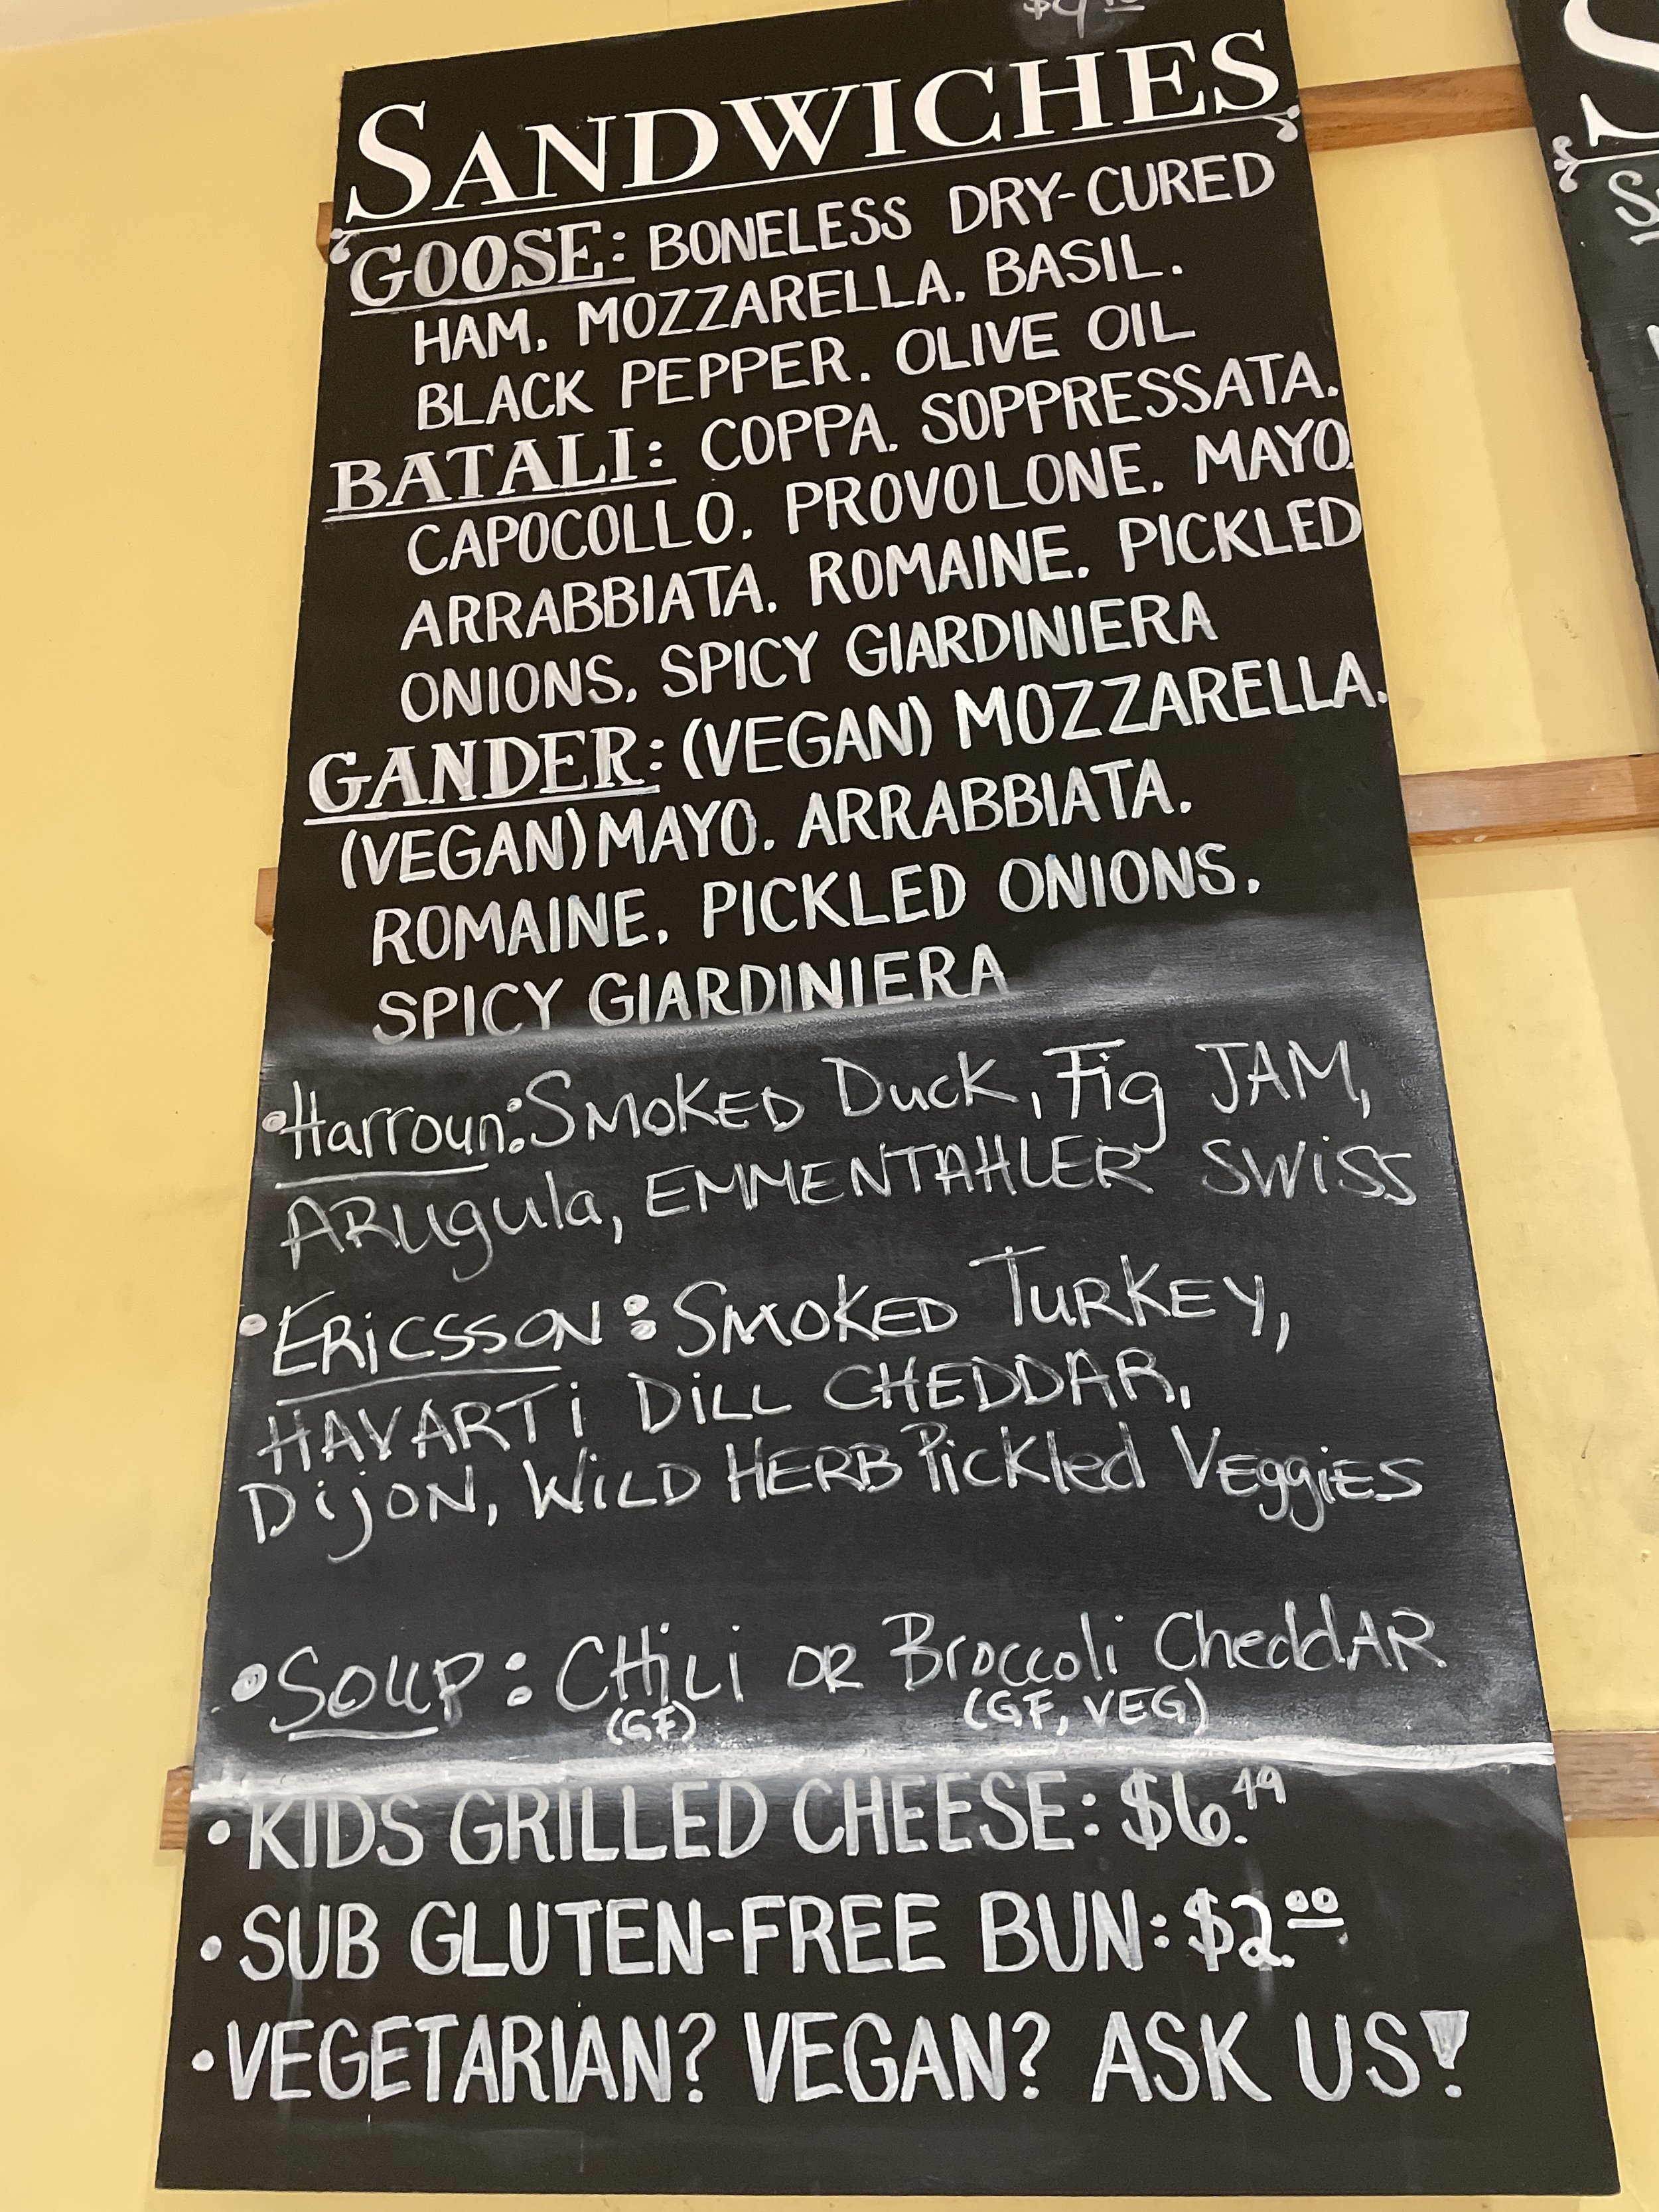 SANDWICHES
GOOSE: BONELESS DRY-CURED
HAM. MOZZARELLA. BASIL.
BLACK PEPPER. OLIVE OIL
BATALI: COPPA. SOPPRESSATA.
CAPOCOLLO. PROVOLONE. MAYO.
ARRABBIATA. ROMAINE. PICKLED
ONIONS. SPICY GIARDINIERA
GANDER: (VEGAN) MOZZARELLA.
(VEGAN) MAYO. ARRABBIATA.
ROMAINE. PICKLED ONIONS.
SPICY GIARDINIERA
•Harroun: SMOKED Duck, Fig JAM,
ARugula, EMMENTAHLER SWiSS
•ERiCSSON: SMOKED TURKEY,
HAVARTi DiLL CHEDDAR,
DijON, WiLD HERB Pickled VEggiES
•SOUP: CHiLi OR Broccoli CheddAR
(GF) (GF, VEG)
•KIDS GRILLED CHEESE: $6.49
•SUB GLUTEN-FREE BUN: $2.00
•VEGETARIAN? VEGAN? ASK US!